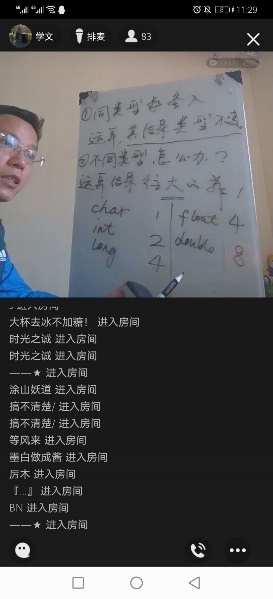 11:29
学文
排麦
83
①同类型数参入
运算,其结果类型不变。
②不同类型,怎么办?
运算结果往大以靠!
char 1 float 4
int 2 double 8
long 4
进入房间
大杯去冰不加糖! 进入房间
时光之诚 进入房间
时光之诚 进入房间
——★ 进入房间
涂山妖道 进入房间
搞不清楚/ 进入房间
搞不清楚/ 进入房间
等风来 进入房间
墨白做成酱 进入房间
厉木 进入房间
『...』 进入房间
BN 进入房间
——★ 进入房间